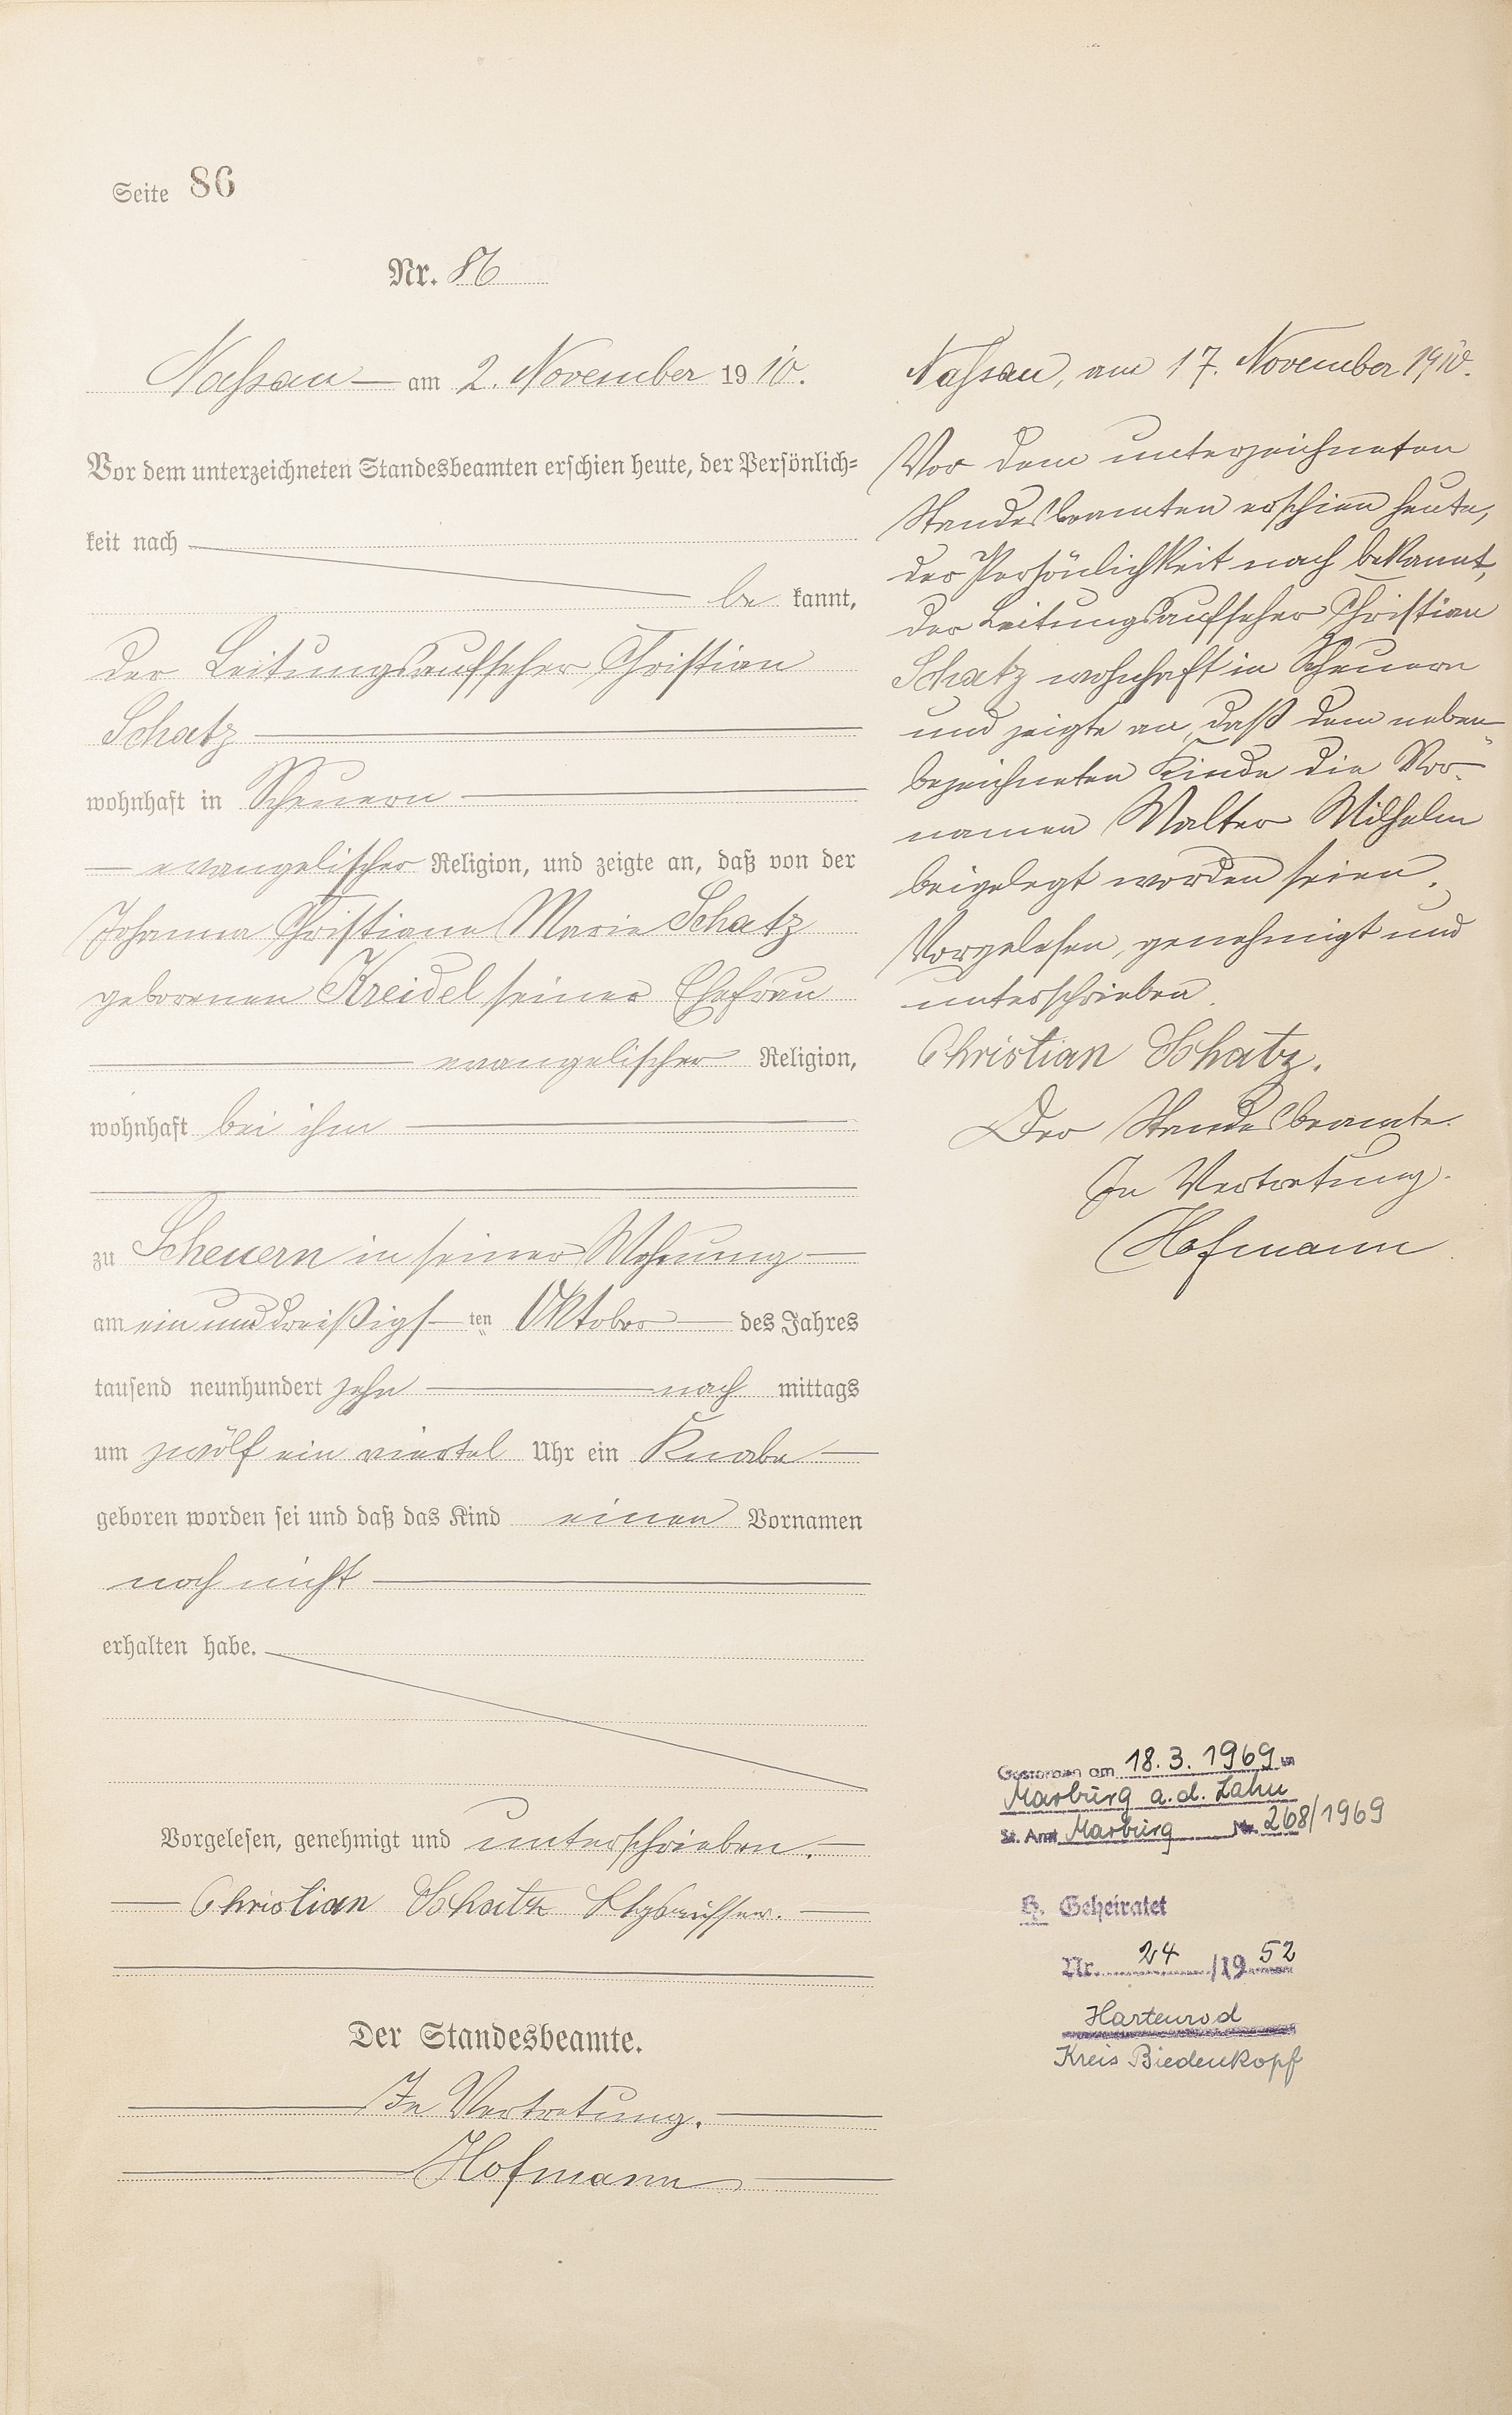 Seite 86
Nr. 86
Nassau am 2. November 1910.
Vor dem unterzeichneten Standesbeamten erschien heute, der Persönlich=
keit nach
be kannt,
der Leitungsaufseher Christian
Schatz
wohnhaft in Scheuern
evangelischer Religion, und zeigte an, daß von der
Johanna Christiane Marie Schatz
geborenen Kreidel seiner Ehefrau
evangelischer Religion,
wohnhaft bei ihm
zu Scheuern in seiner Wohnung
am ein und dreißigs ten Oktober des Jahres
tausend neunhundert zehn nach mittags
um zwölf ein viertel Uhr ein Knabe
geboren worden sei und daß das Kind einen Vornamen
noch nicht
erhalten habe.
Vorgelesen, genehmigt und unterschrieben.
Christian Schatz
Der Standesbeamte.
In Vertretung.
Hofmann
Nassau, am 17. November 1910.
Vor dem unterzeichneten
Standesbeamten erschien heute,
der Persönlichkeit nach bekannt,
der Leitungsaufseher Christian
Schatz wohnhaft in Scheuern
und zeigte an, daß dem neben-
bezeichneten Kinde die Vor-
namen Walter Wilhelm
beigelegt worden seien.
Vorgelesen, genehmigt und
unterschrieben.
Christian Schatz.
Der Standesbeamte.
In Vertretung.
Hofmann
Gestorben am 18.3.1969 in
Marburg a.d. Lahn
St. Amt Marburg Nr. 268/1969
Geheiratet
Nr. 24 /19 52
Hartenrod
Kreis Biedenkopf